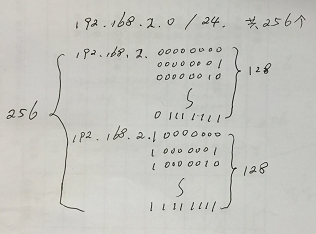 192.168.2.0 / 24. 共256个
192.168.2. 00000000
00000001
00000010
128
0 1111111
256
192.168.2.1 0000000
1 0000001
1 0000010
128
1 1111111